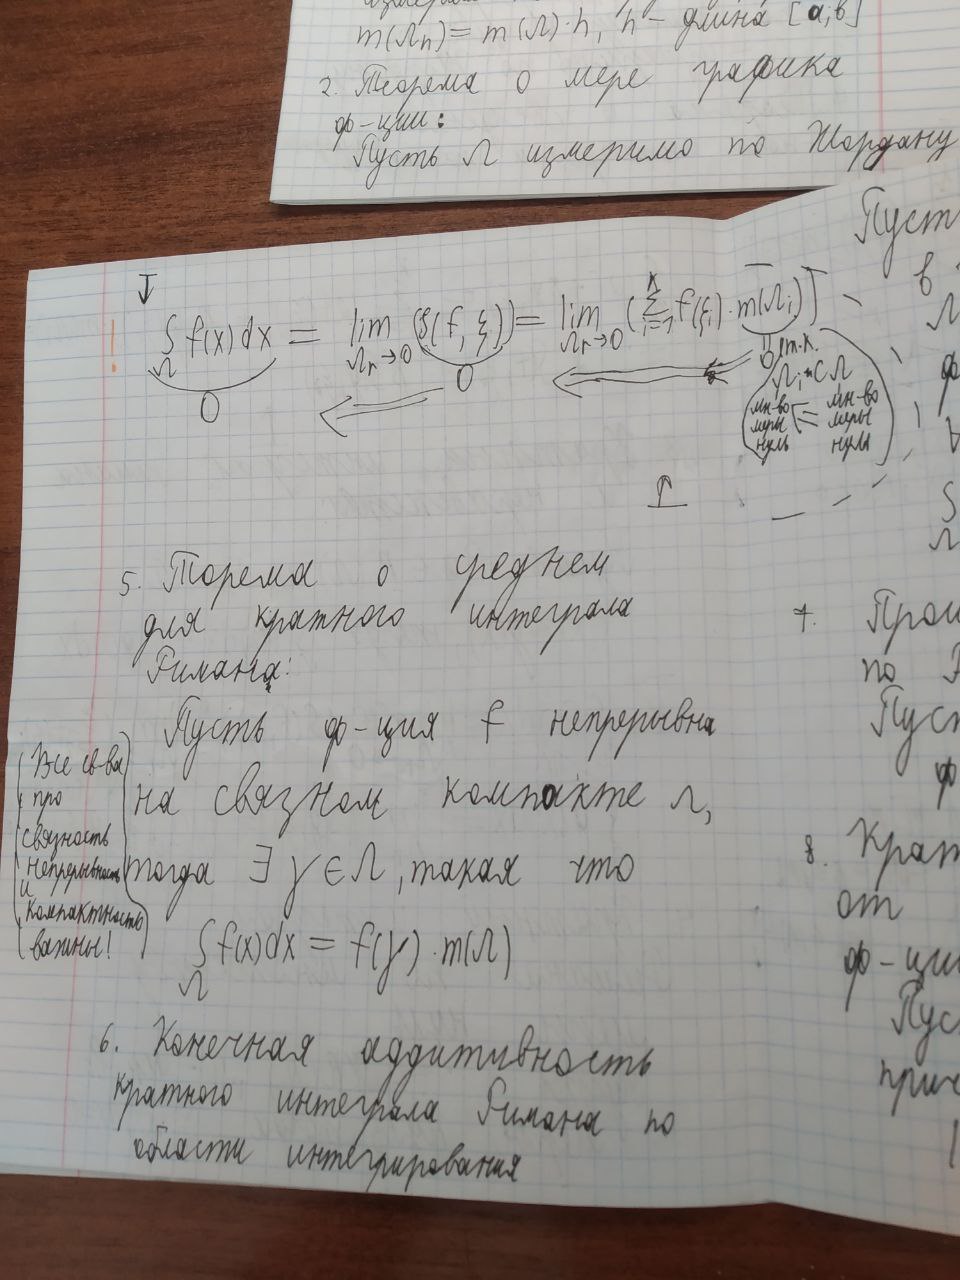 m(Λh) = m(Λ)·h, h – длина [a;b]
2. Теорема о мере графика
ф-ции:
Пусть Λ измеримо по Жордану
∫Λ f(x)dx = lim Λτ→0 (S(f, ξ)) = lim Λτ→0 (Σ i=1 k f(ξi)·m(Λi))
0
0
0 т.к.
Λi ⊂ Λ
мн-во мн-во
меры <= меры
нуль нуль
5. Торема о среднем
для кратного интеграла
Римана:
Пусть ф-ция f непрерывна
на связном компакте Λ,
тогда ∃ γ ∈ Λ, такая что
∫Λ f(x)dx = f(γ)·m(Λ)
(Все св-ва
про
связность
непрерывность
и
компактность
важны!)
6. Конечная аддитивность
кратного интеграла Римана по
области интегрирования
Пуст
в
Λ
ф
S
Λ
7. Прои
по
Пуст
ф
8. Крат
от
ф-ции
Пус
прич